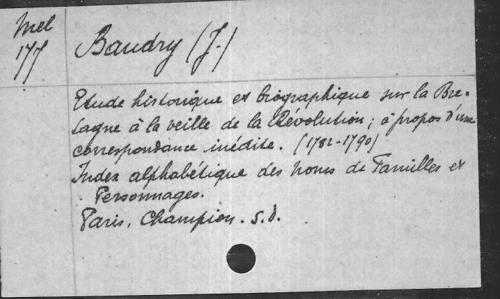 Mel
177
Baudry (J.)
Etude historique et biographique sur la Bre-
tagne à la veille de la Révolution; à propos d'une
correspondance inédite. (1782-1790)
Index alphabétique des noms de Familles et
Personnages.
Paris, Champion. s.d.